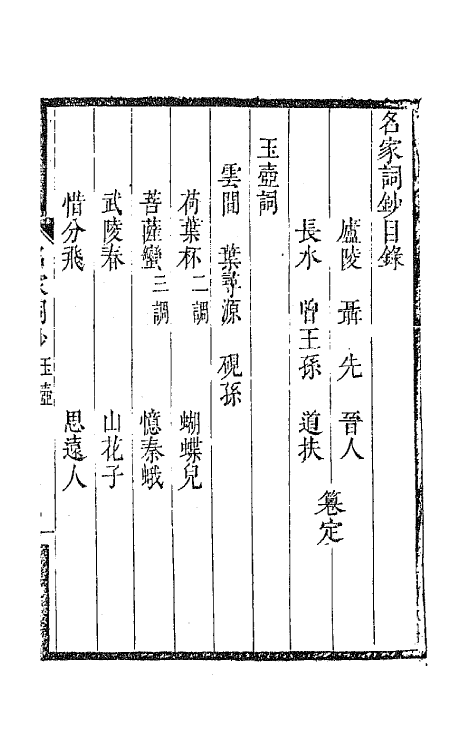 名家詞鈔目錄
廬陵 聶先 晉人
長水 曾王孫 道扶
纂定
玉壺詞
雲間 葉尋源 硯孫
荷葉杯二調 蝴蝶兒
菩薩蠻三調 憶秦蛾
武陵春 山花子
惜分飛 思遠人
名家詞鈔 玉壺 一